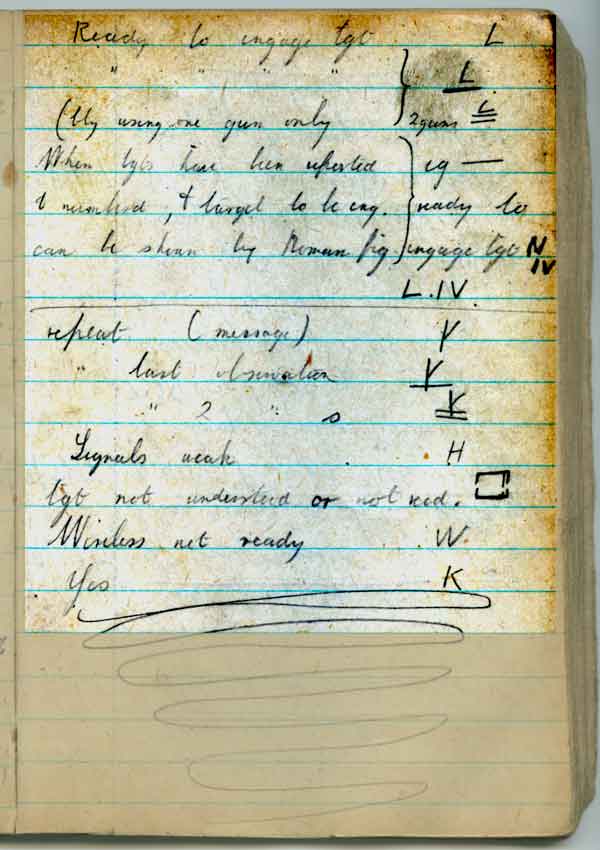 Ready to engage tgt L
" " " " L
(By using one gun only 2 guns L
When tgts have been reported eg —
& numbered, & target to be eng. ready to
can be shown by Roman fig engage tgt N
IV
L.IV.
repeat (message) V
" last observation V
" 2 " s V
Signals weak H
tgt not understood or not recd.
Wireless not ready W
Yes K